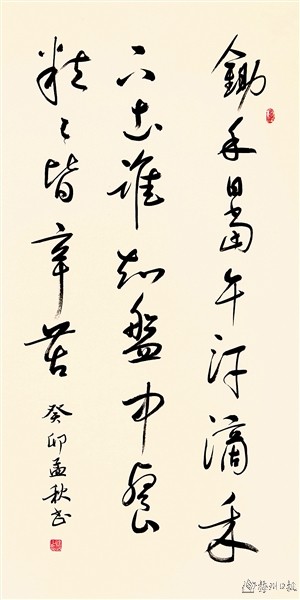 鋤禾日當午汗滴禾
下土誰知盤中餐
粒々皆辛苦
癸卯孟秋书
梅州日报